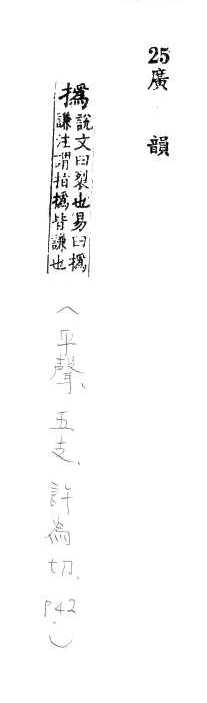 25廣韻
撝說文曰裂也易曰撝
謙注謂指撝皆謙也
（平聲、五支、許為切、P42.）